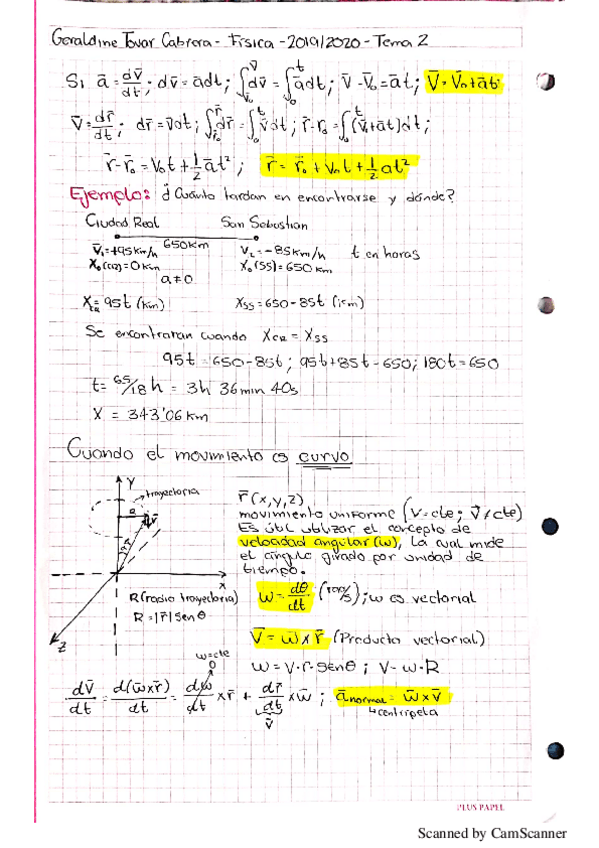 Geraldine Tovar Cabrera - Física - 2019/2020 - Tema 2
Si ā = dv̄/dt ; dv̄ = ādt ; ∫dv̄ = ∫ādt ; v̄ - v̄₀ = āt ; v̄ = v̄₀ + āt
v̄ = dr̄/dt ; dr̄ = v̄dt ; ∫dr̄ = ∫v̄dt ; r̄ - r₀ = ∫(v̄₀ + āt)dt ;
r̄ - r̄₀ = v₀t + 1/2 āt² ; r̄ = r̄₀ + v₀t + 1/2 at²
Ejemplo: ¿Cuánto tardan en encontrarse y dónde?
Ciudad Real San Sebastian
650km
V̄₁ = +95km/h V₂ = -85km/h t en horas
X₀(CR) = 0km X₀(SS) = 650km
X_CR = 95t (km) X_SS = 650 - 85t (km)
Se encontraran cuando X_CR = X_SS
95t = 650 - 85t ; 95t + 85t = 650 ; 180t = 650
t = 65/18 h = 3h 36min 40s
X = 343'06 km
Cuando el movimiento es curvo
Y
trayectoria
R
X
Z
R (radio trayectoria)
R = |r̄| sen θ
r̄ (x,y,z)
movimiento uniforme (V = cte ;
Es útil utilizar el concepto de
velocidad angular (ω), la cual mide
el ángulo girado por unidad de
tiempo.
ω = dθ/dt (rad/s) ; ω es vectorial
V̄ = ω̄ x r̄ (Producto vectorial)
ω = V · r · sen θ ; V = ω · R
ω = cte
0
dv̄/dt = d(ω̄xr̄)/dt = dω/dt x r̄ + dr̄/dt x ω̄ ; ā normal = ω̄ x v̄
v̄
centrípeta
PLUS PAPEL
Scanned by CamScanner